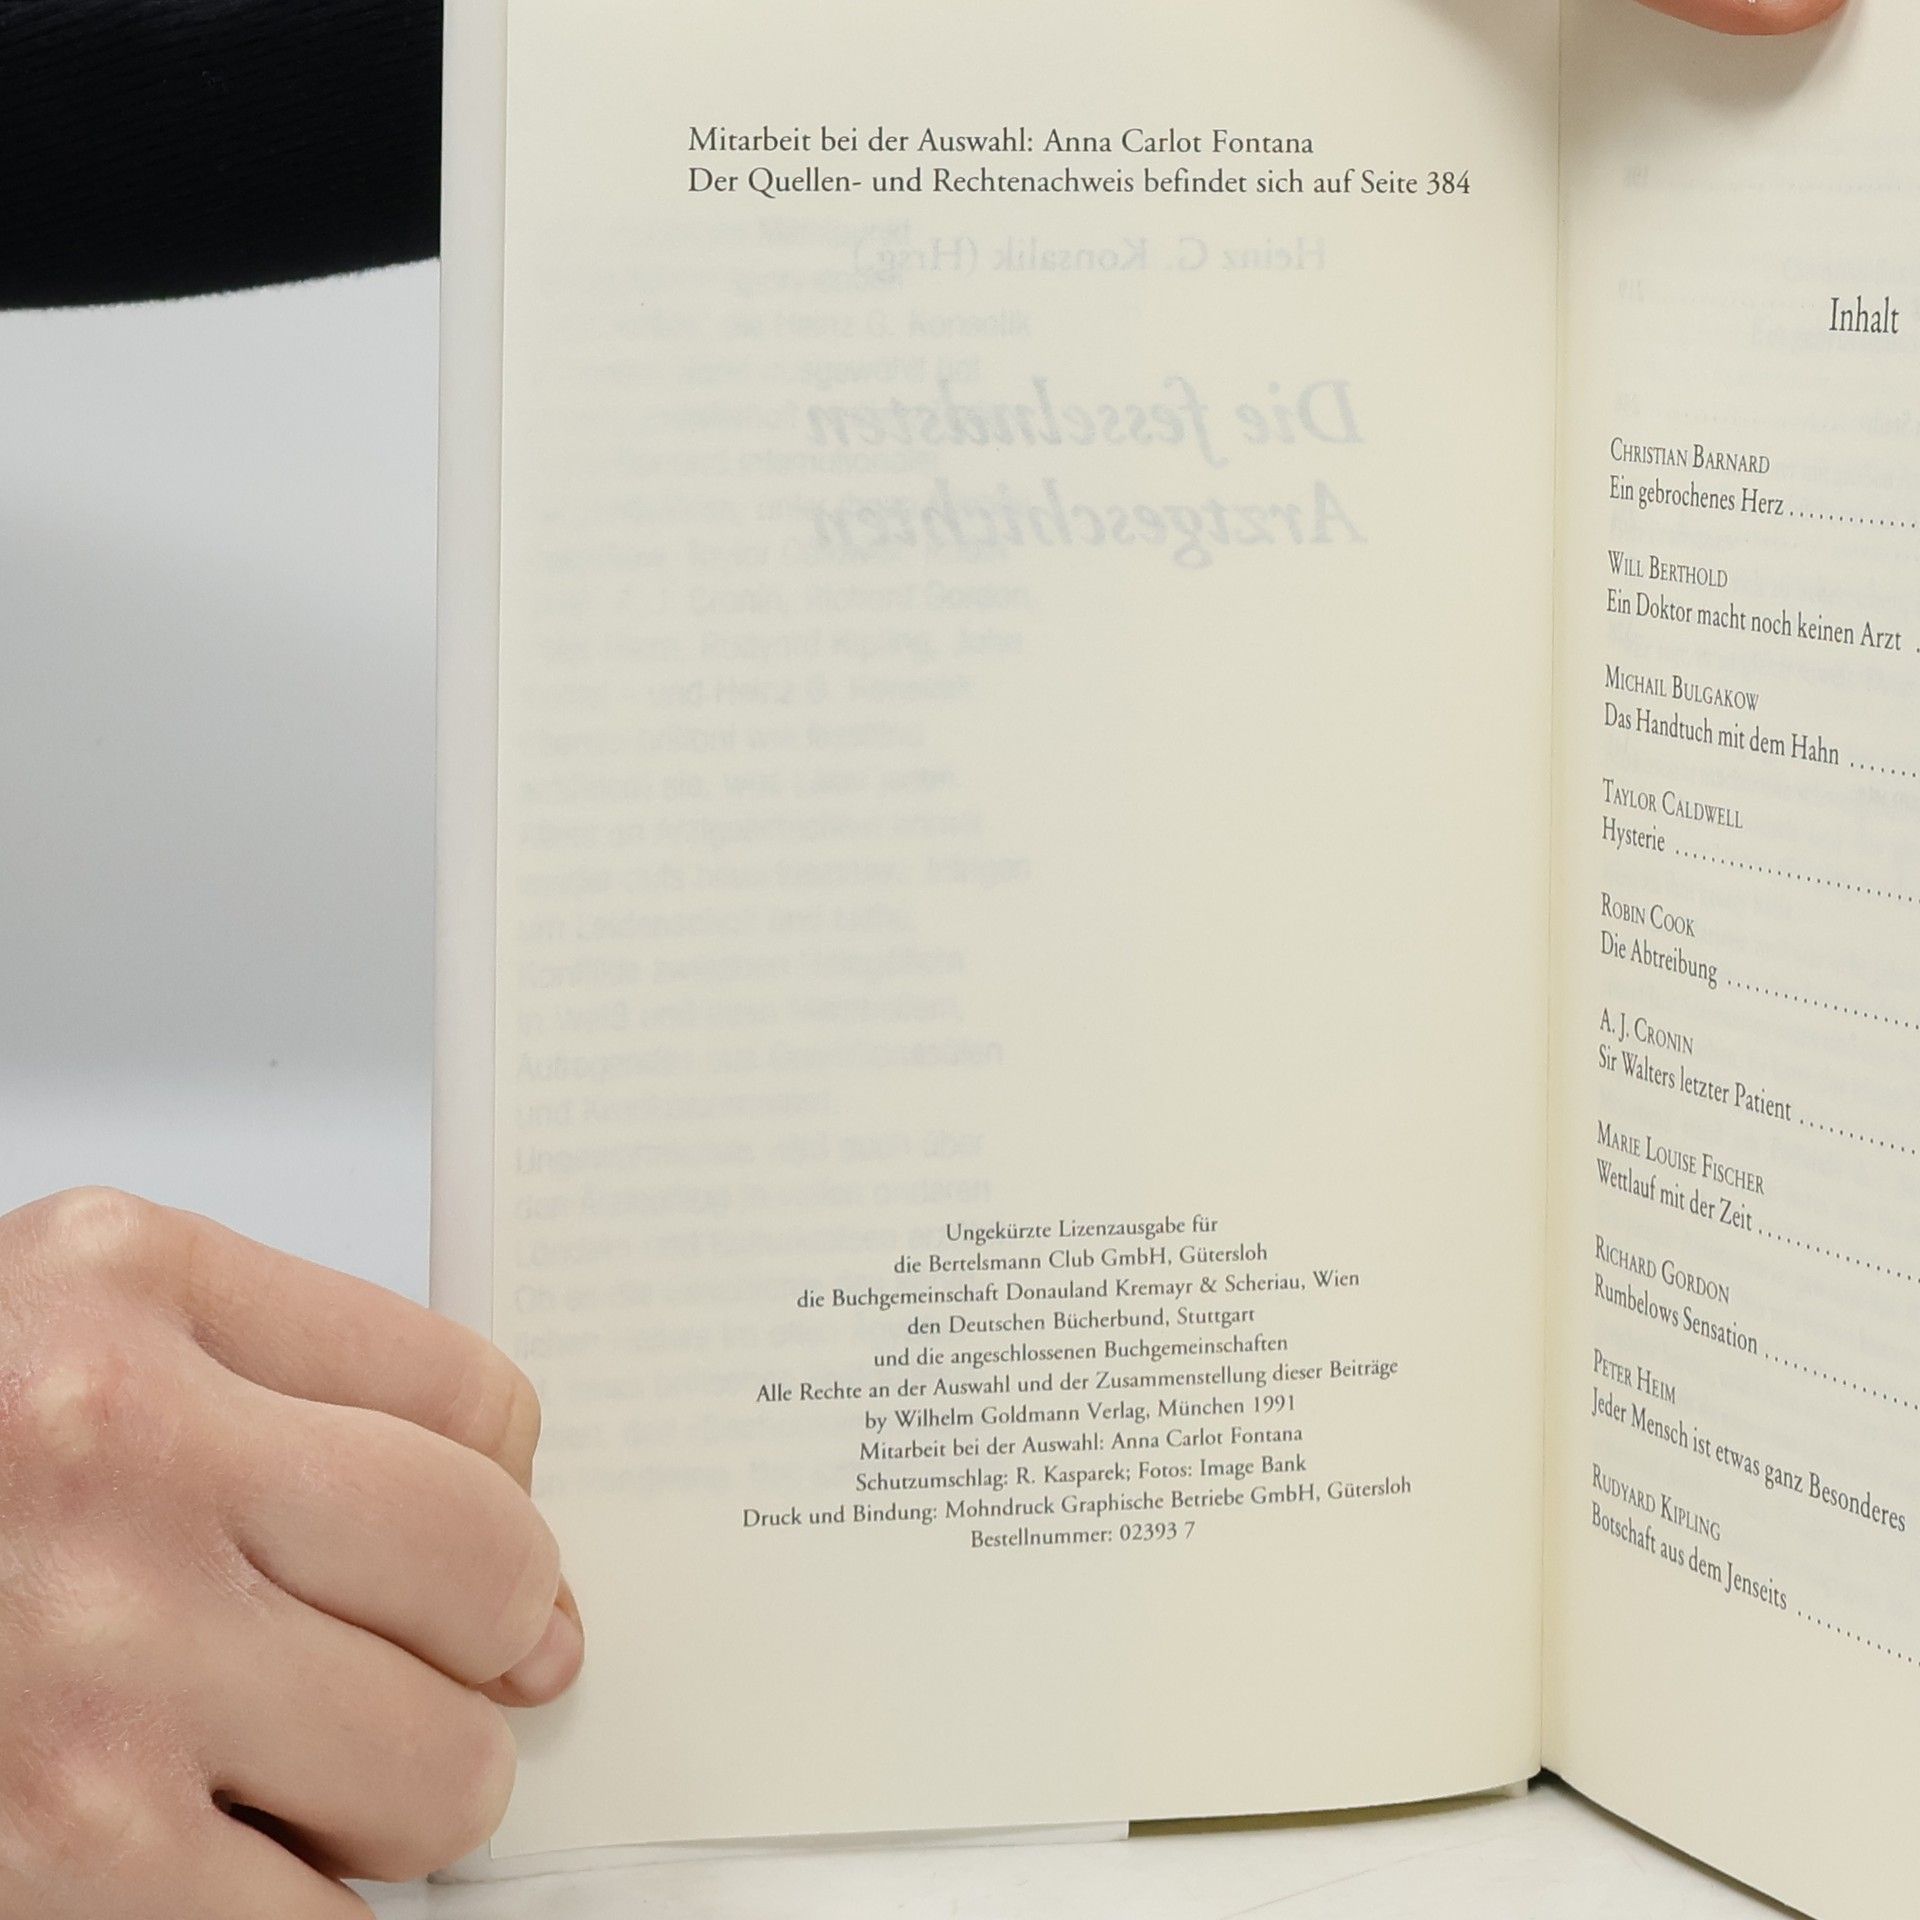 Mitarbeit bei der Auswahl: Anna Carlot Fontana
Der Quellen- und Rechtenachweis befindet sich auf Seite 384
Heinz G. Konsalik (Hrsg.)
Die fesselndsten
Arztgeschichten
Ungekürzte Lizenzausgabe für
die Bertelsmann Club GmbH, Gütersloh
die Buchgemeinschaft Donauland Kremayr & Scheriau, Wien
den Deutschen Bücherbund, Stuttgart
und die angeschlossenen Buchgemeinschaften
Alle Rechte an der Auswahl und der Zusammenstellung dieser Beiträge
by Wilhelm Goldmann Verlag, München 1991
Mitarbeit bei der Auswahl: Anna Carlot Fontana
Schutzumschlag: R. Kasparek; Fotos: Image Bank
Druck und Bindung: Mohndruck Graphische Betriebe GmbH, Gütersloh
Bestellnummer: 02393 7
Inhalt
CHRISTIAN BARNARD
Ein gebrochenes Herz . . . . . . . . . . . . .
WILL BERTHOLD
Ein Doktor macht noch keinen Arzt .
MICHAIL BULGAKOW
Das Handtuch mit dem Hahn . . . . . . .
TAYLOR CALDWELL
Hysterie . . . . . . . . . . . . . . . . . . . . . . . .
ROBIN COOK
Die Abtreibung . . . . . . . . . . . . . . . . . .
A. J. CRONIN
Sir Walters letzter Patient . . . . . . . . . . .
MARIE LOUISE FISCHER
Wettlauf mit der Zeit . . . . . . . . . . . . . .
RICHARD GORDON
Rumbelows Sensation . . . . . . . . . . . . . .
PETER HEIM
Jeder Mensch ist etwas ganz Besonderes
RUDYARD KIPLING
Botschaft aus dem Jenseits . . . . . . . . . . .